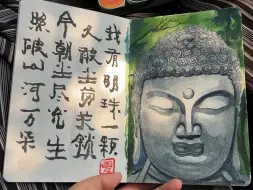 我有明珠一颗
久被尘劳关鎖
今朝尘尽光生
照破山河万朵